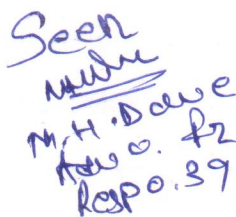 Seen
M.H. Dave
Adv o. for
Resp o. 39